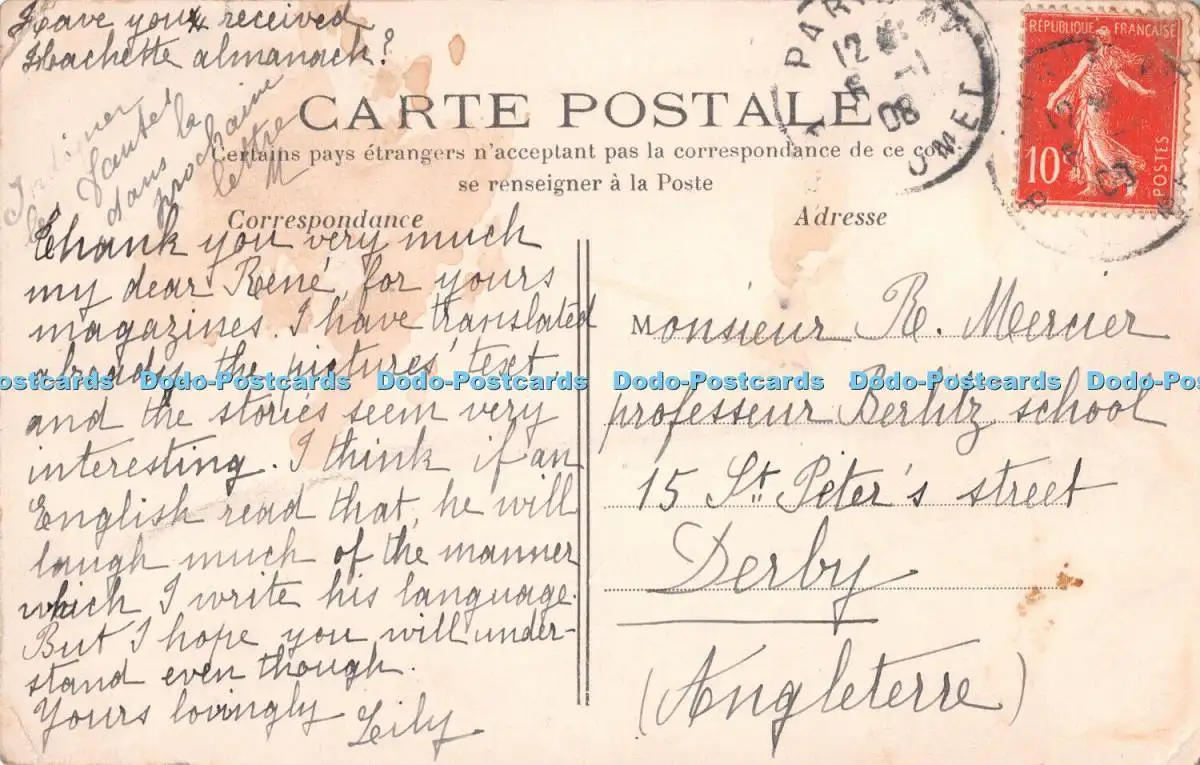 Have you received
Hachette almanach?
Indiquer
les fautes
dans la
prochaine
lettre
CARTE POSTALE
Certains pays étrangers n'acceptant pas la correspondance de ce
se renseigner à la Poste
Correspondance
Thank you very much
my dear René, for yours
magazines. I have translated
already the pictures' text,
and the stories seem very
interesting. I think if an
English read that, he will
laugh much of the manner
which I write his language.
But I hope you will under-
stand even though.
Yours lovingly Lily
Adresse
Monsieur R. Mercier
professeur Berlitz school
15 St. Peter's street
Derby
(Angleterre)
RÉPUBLIQUE FRANÇAISE
10
POSTES
PAR
12
08
Dodo-Postcards Dodo-Postcards Dodo-Postcards Dodo-Postcards Dodo-Postcards